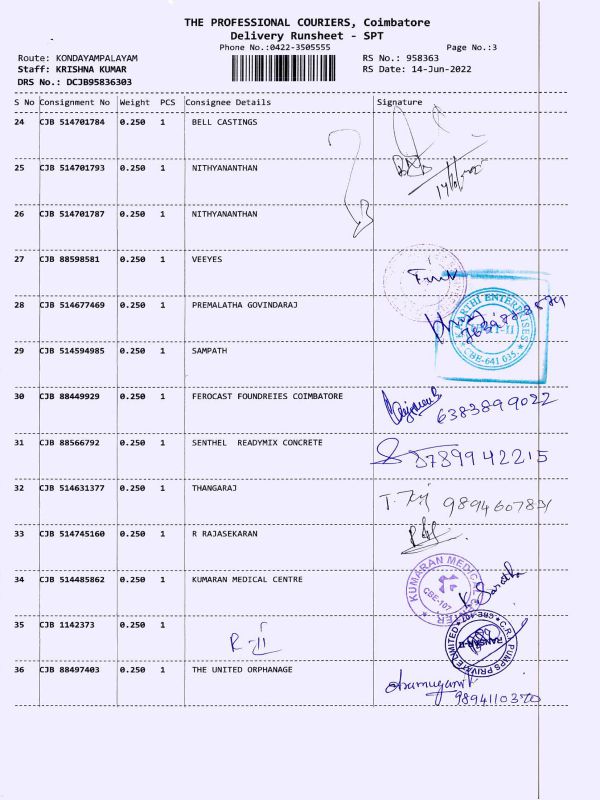 THE PROFESSIONAL COURIERS, Coimbatore
Delivery Runsheet - SPT
Phone No.:0422-3505555 Page No.:3
Route: KONDAYAMPALAYAM RS No.: 958363
Staff: KRISHNA KUMAR RS Date: 14-Jun-2022
DRS No.: DCJB95836303
S No Consignment No Weight PCS Consignee Details Signature
24 CJB 514701784 0.250 1 BELL CASTINGS
25 CJB 514701793 0.250 1 NITHYANANTHAN
26 CJB 514701787 0.250 1 NITHYANANTHAN
27 CJB 88598581 0.250 1 VEEYES
28 CJB 514677469 0.250 1 PREMALATHA GOVINDARAJ
KARTHI ENTERPRISES
29 CJB 514594985 0.250 1 SAMPATH
CBE-641 035
30 CJB 88449929 0.250 1 FEROCAST FOUNDREIES COIMBATORE
6383899022
31 CJB 88566792 0.250 1 SENTHEL READYMIX CONCRETE
8789942215
32 CJB 514631377 0.250 1 THANGARAJ
33 CJB 514745160 0.250 1 R RAJASEKARAN
34 CJB 514485862 0.250 1 KUMARAN MEDICAL CENTRE
KUMARAN MEDICAL CENTER
CBE-107
35 CJB 1142373 0.250 1
C.R.I. PUMPS PRIVATE LIMITED
36 CJB 88497403 0.250 1 THE UNITED ORPHANAGE
9894110370